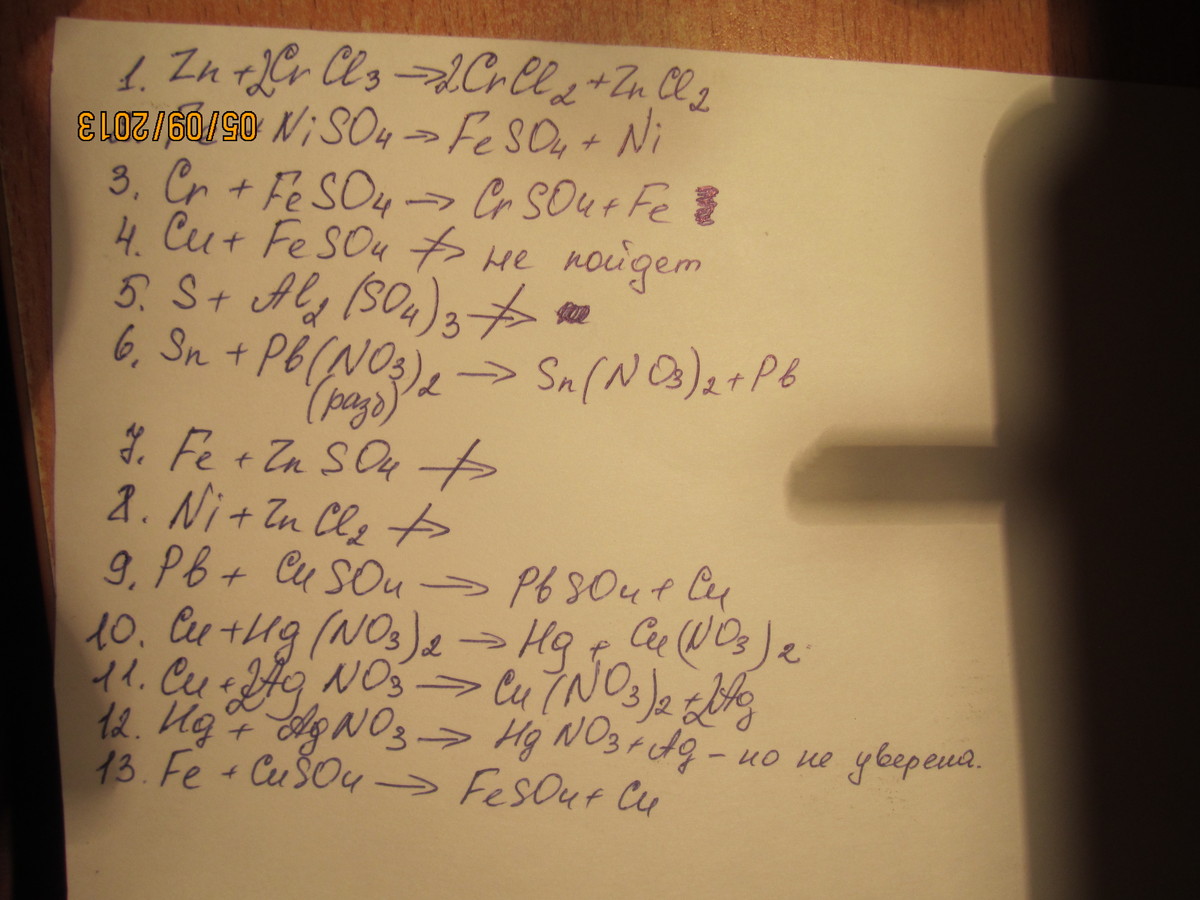 1. Zn + 2CrCl3 → 2CrCl2 + ZnCl2
05/09/2013
NiSO4 → FeSO4 + Ni
3. Cr + FeSO4 → CrSO4 + Fe
4. Cu + FeSO4 ↛ не пойдет
5. S + Al2(SO4)3 ↛
6. Sn + Pb(NO3)2 → Sn(NO3)2 + Pb
(разб)
7. Fe + ZnSO4 ↛
8. Ni + ZnCl2 ↛
9. Pb + CuSO4 → PbSO4 + Cu
10. Cu + Hg(NO3)2 → Hg + Cu(NO3)2.
11. Cu + 2AgNO3 → Cu(NO3)2 + 2Ag
12. Hg + AgNO3 → HgNO3 + Ag – но не уверена.
13. Fe + CuSO4 → FeSO4 + Cu